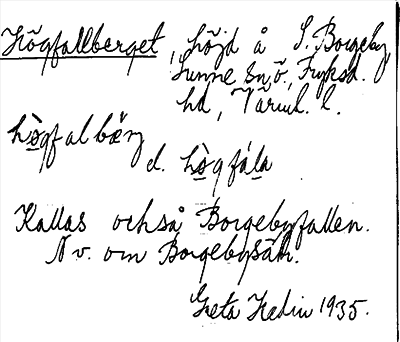 Högfallberget, höjd å S. Borgeby,
Sunne sn ö., Fryksd.
hd, Värml. l.
hò̱gfalbærj
d. hò̱gfála̱
Kallas också Borgebyfallen.
N v. om Borgebysäh.
Greta Hedin 1935.